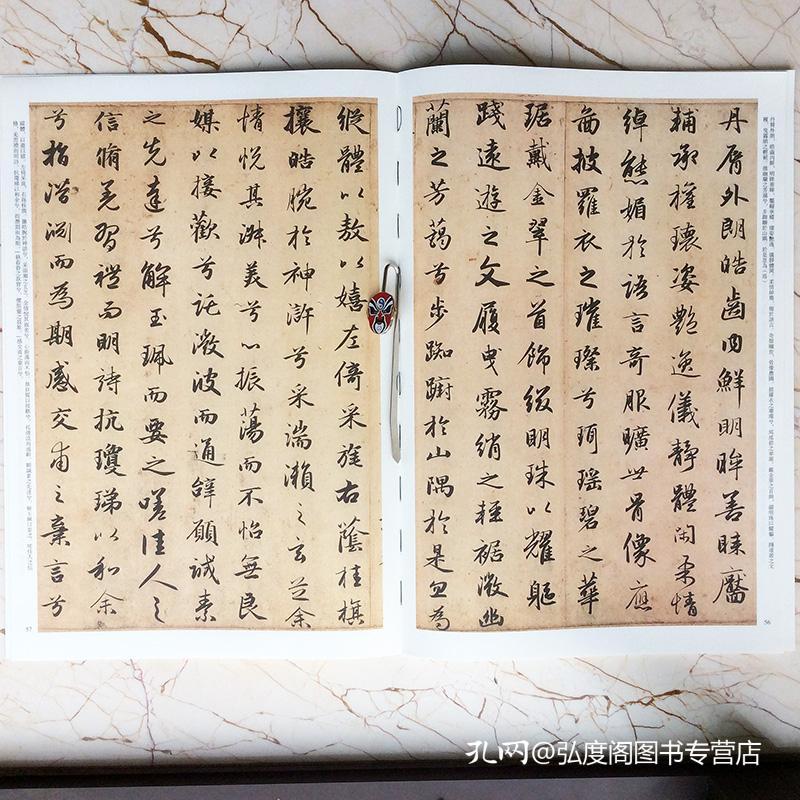 丹脣外朗皓齒內鮮明眸善睞靨
輔承權瓌姿艷逸儀靜體閑柔情
綽態媚於語言奇服曠世骨像應
啚披羅衣之璀璨兮珥瑤碧之華
琚戴金翠之首飾綴明珠以耀軀
踐遠遊之文履曳霧綃之輕裾微幽
蘭之芳藹兮步踟躕於山隅於是忽為
56
縱體以敖以嬉左倚采旄右蔭桂旗
攘皓腕於神滸兮采湍瀨之玄芝余
情悅其淑美兮心振蕩而不怡無良
媒以接歡兮託微波而通辭願誠素
之先達兮解玉珮而要之嗟佳人之
信脩羌習禮而明詩抗瓊珶以和余
兮指潛淵而為期感交甫之棄言兮
57
孔网@弘度阁图书专营店